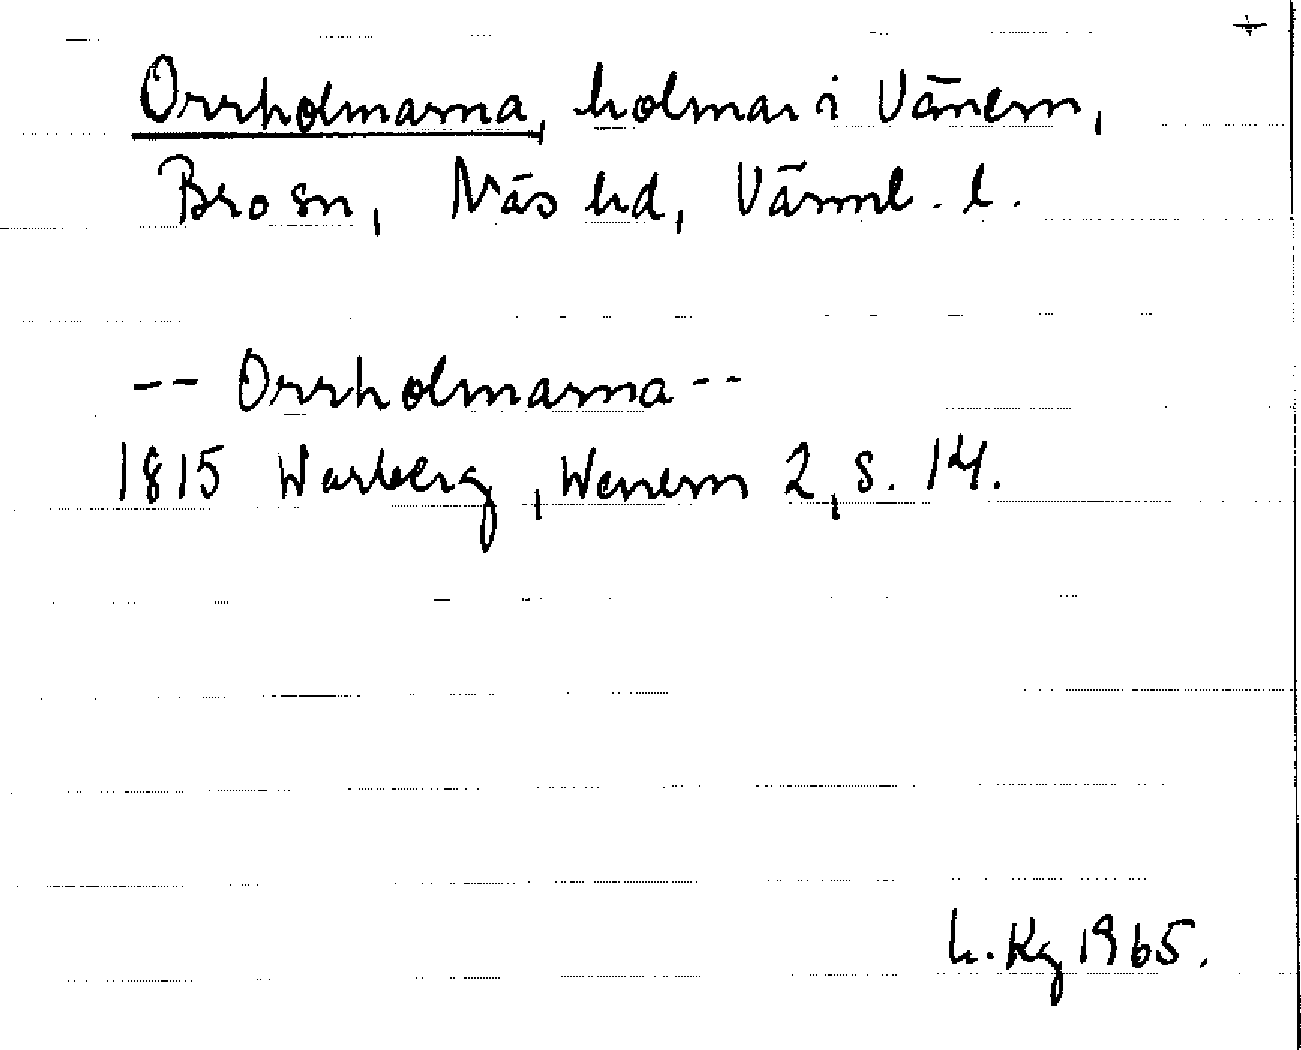 Orrholmarna, holmar i Vänern,
Bro sn, Näs hd, Värml. l.
-- Orrholmarna --
1815 Warberg, Wenern 2, s. 14.
h. Kg 1965.